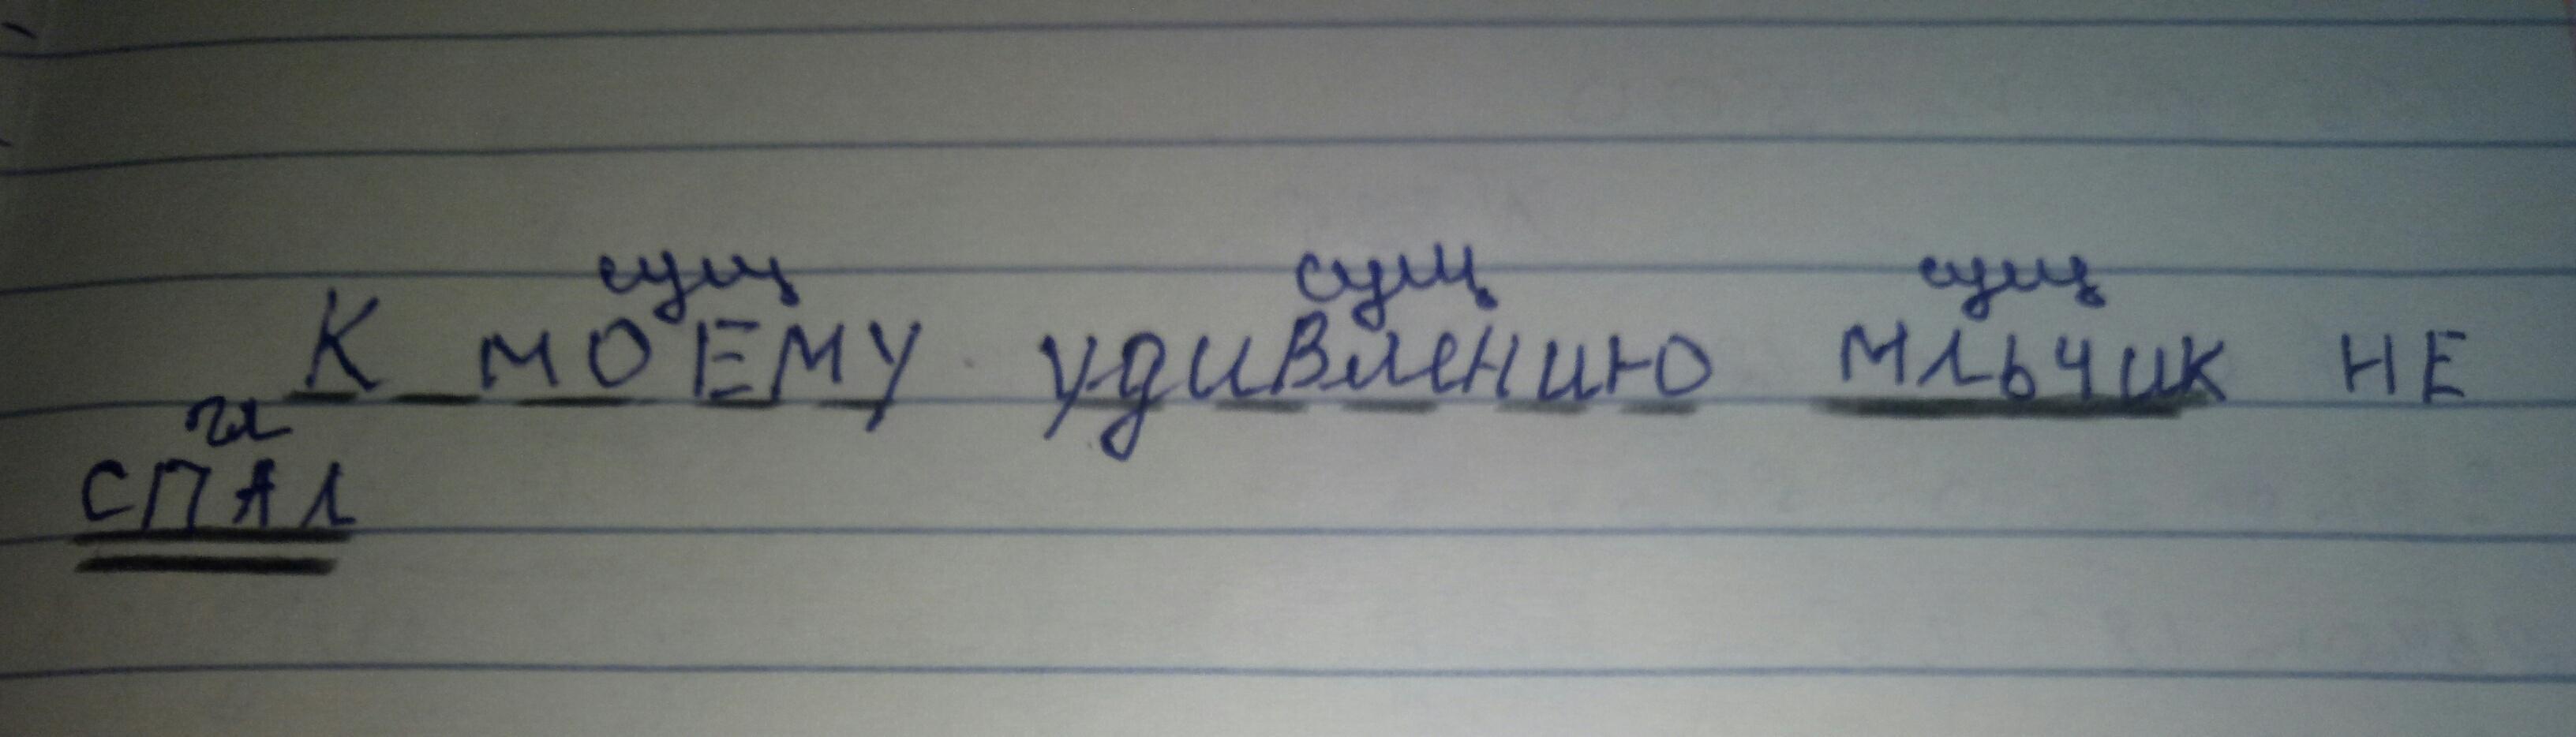 сущ сущ сущ
К МОЕМУ удивлению МЛЬЧИК НЕ
гл
СПАЛ